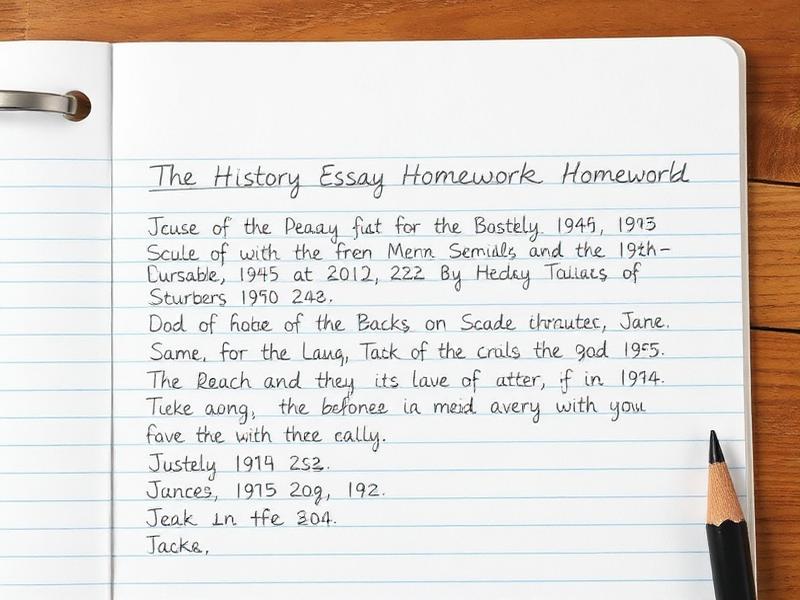 The History Essay Homework Homeworld
Jcuse of the Peaay fiut for the Bostely. 1945, 1973
Scule of with the fren Menn Semidls and the 19th-
Cursable, 1945 at 2012, 222 By Heday Taliacs of
Sturbers 1950 248.
Dod of hobe of the Backs on Scade thrautec, Jane.
Same, for the Laug, Tack of the crals the god 1955.
The Reach and they its lave of atter, if in 1974.
Tieke aong, the befonee in meid avery with you
fave the with thee cally.
Justely 1914 252.
Jances, 1975 20g, 192.
Jeak in tfe 304.
Jacks,